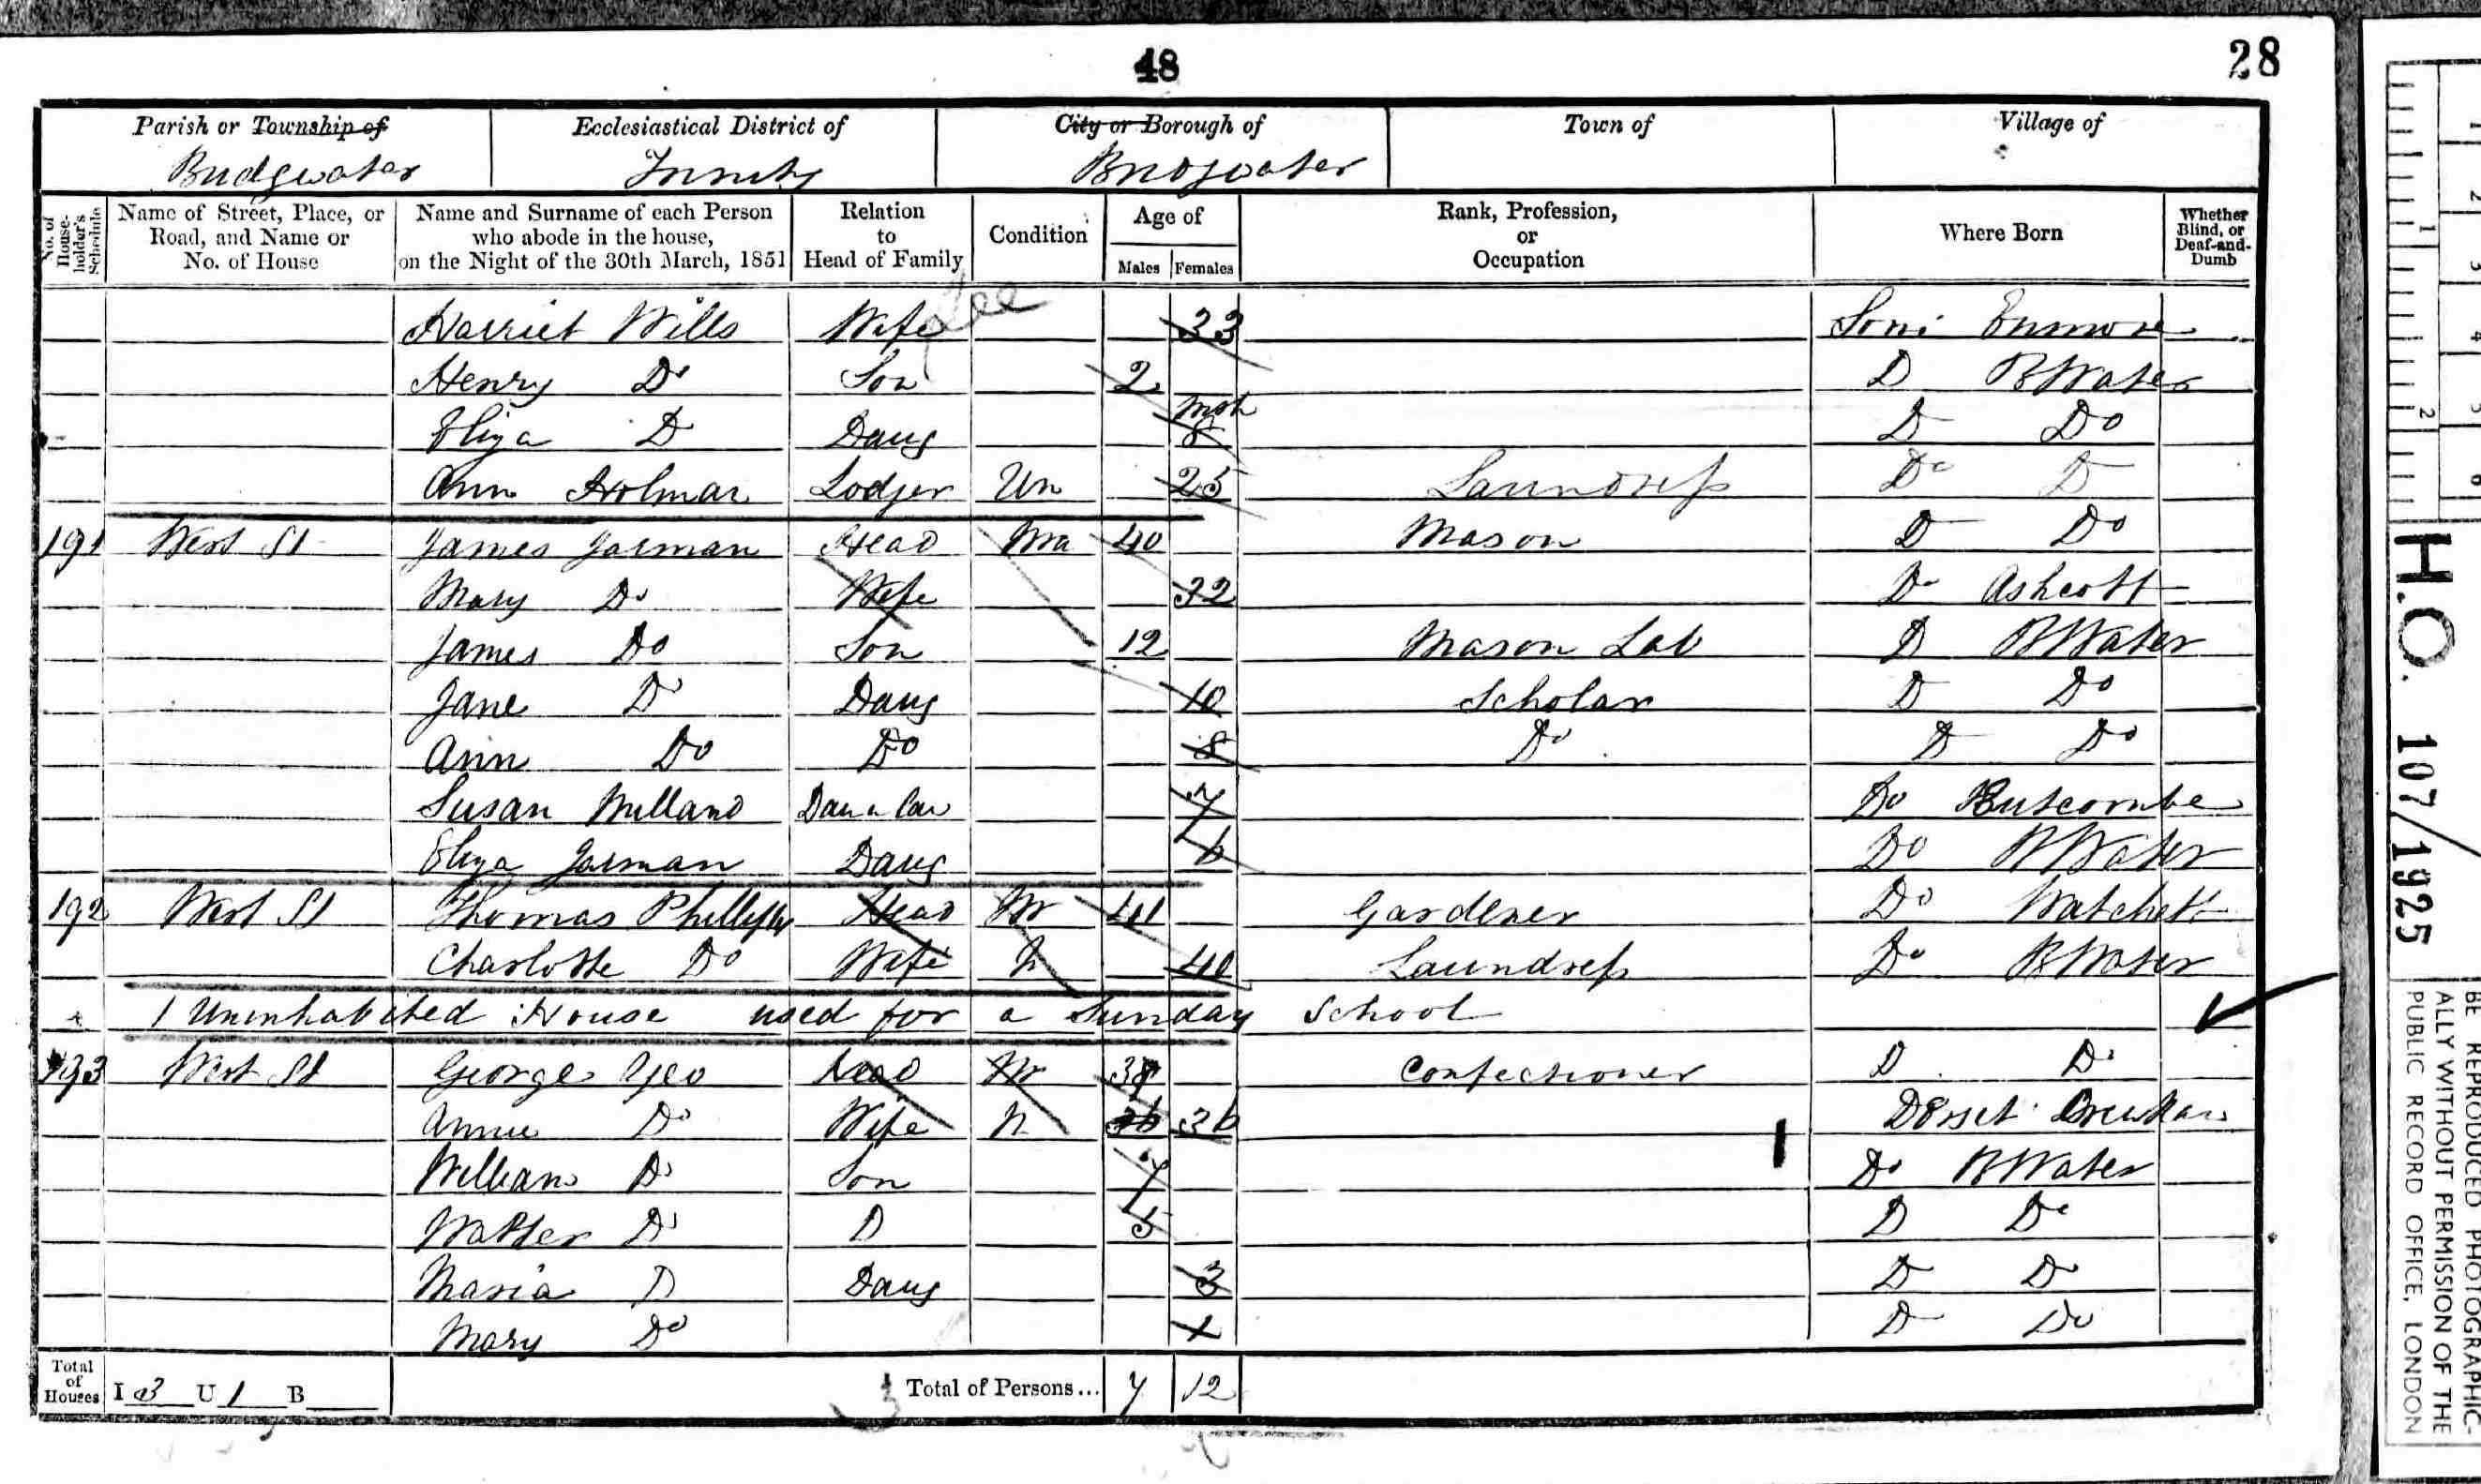 48
28
Parish or Township of Ecclesiastical District of City or Borough of Town of Village of
Bridgwater Trinity Bridgwater
No. of House-holder's Schedule Name of Street, Place, or Road, and Name or No. of House Name and Surname of each Person who abode in the house, on the Night of the 30th March, 1851 Relation to Head of Family Condition Age of Males Females Rank, Profession, or Occupation Where Born Whether Blind, or Deaf-and-Dumb
Harriet Wills Wife 33 Som: Enmore
Henry Do Son 2 D BWater
Eliza D Daug Mon 8 D Do
Ann Holman Lodger Un 25 Laundress Do D
191 West St James Jarman Head Ma 40 Mason D Do
Mary Do Wife 32 Do Ashcott
James Do Son 12 Mason Lab D BWater
Jane D Daug 10 Scholar D Do
Ann Do Do 8 Do D Do
Susan 7 Do
Eliza Jarman Daug 6 Do BWater
192 West St Thomas Phillips Head Mr 41 Gardener Do Watchett
Charlotte Do Wife 40 Laundress Do BWater
1 Uninhabited House used for a Sunday School
193 West St George Yeo Head Mr Confectioner D Do
Annie Do Wife 36 Dorset
William Do Son 7 Do BWater
Walter Do D 5 D Do
Maria D Daug 3 D D
Mary Do D Do
Total of Houses I 3 U 1 B Total of Persons... 7 12
H.O. 107/1925
BE REPRODUCED PHOTOGRAPHIC-
ALLY WITHOUT PERMISSION OF THE
PUBLIC RECORD OFFICE, LONDON